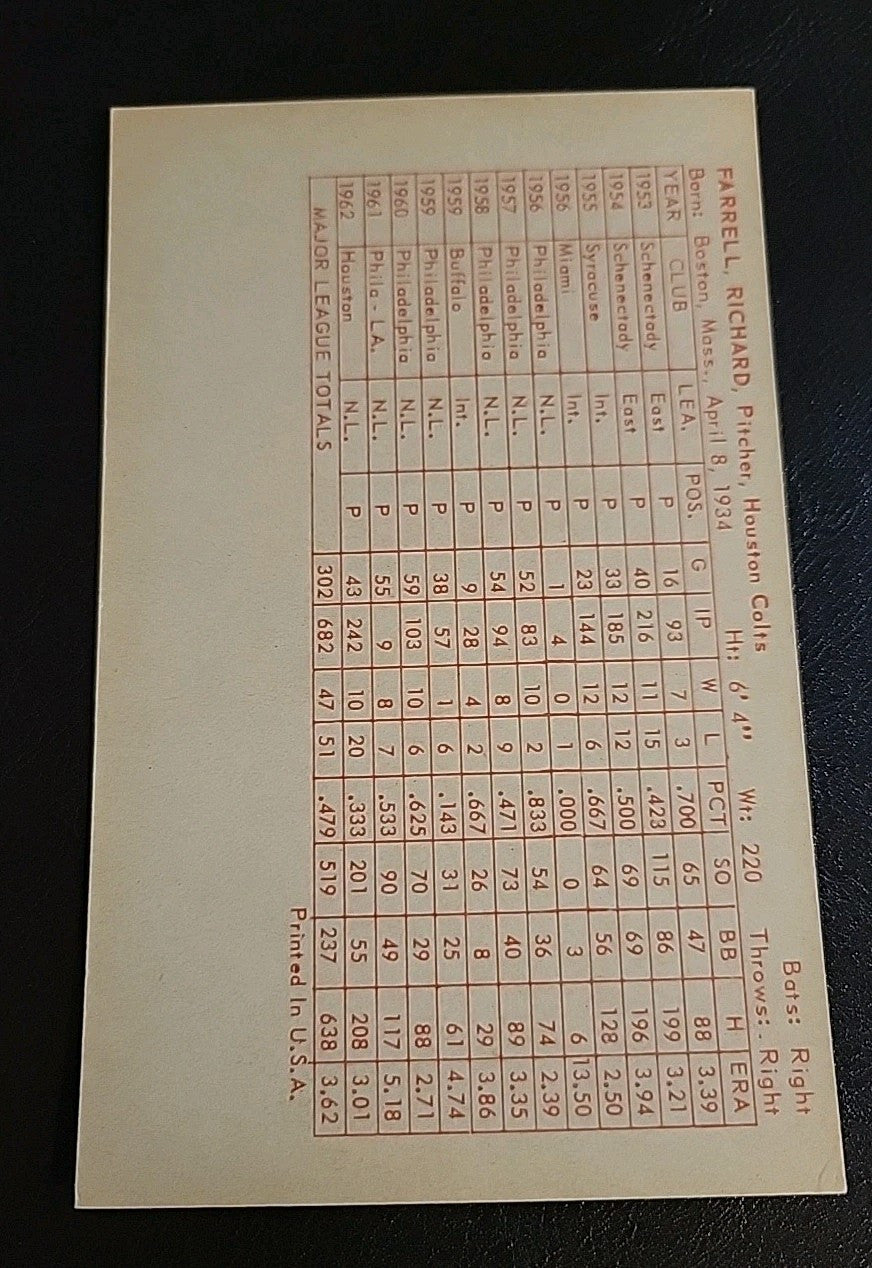 FARRELL, RICHARD, Pitcher, Houston Colts Bats: Right
Born: Boston, Mass., April 8, 1934 Ht: 6' 4" Wt: 220 Throws: Right
YEAR CLUB LEA. POS. G IP W L PCT SO BB H ERA
1953 Schenectady East P 16 93 7 3 .700 65 47 88 3.39
1954 Schenectady East P 40 216 11 15 .423 115 86 199 3.21
1955 Syracuse Int. P 33 185 12 12 .500 69 69 196 3.94
1956 Miami Int. P 23 144 12 6 .667 64 56 128 2.50
1956 Philadelphia N.L. P 1 4 0 1 .000 0 3 6 13.50
1957 Philadelphia N.L. P 52 83 10 2 .833 54 36 74 2.39
1958 Philadelphia N.L. P 54 94 8 9 .471 73 40 89 3.35
1959 Buffalo Int. P 9 28 4 2 .667 26 8 29 3.86
1959 Philadelphia N.L. P 38 57 1 6 .143 31 25 61 4.74
1960 Philadelphia N.L. P 59 103 10 6 .625 70 29 88 2.71
1961 Phila - L.A. N.L. P 55 9 8 7 .533 90 49 117 5.18
1962 Houston N.L. P 43 242 10 20 .333 201 55 208 3.01
MAJOR LEAGUE TOTALS 302 682 47 51 .479 519 237 638 3.62
Printed In U.S.A.